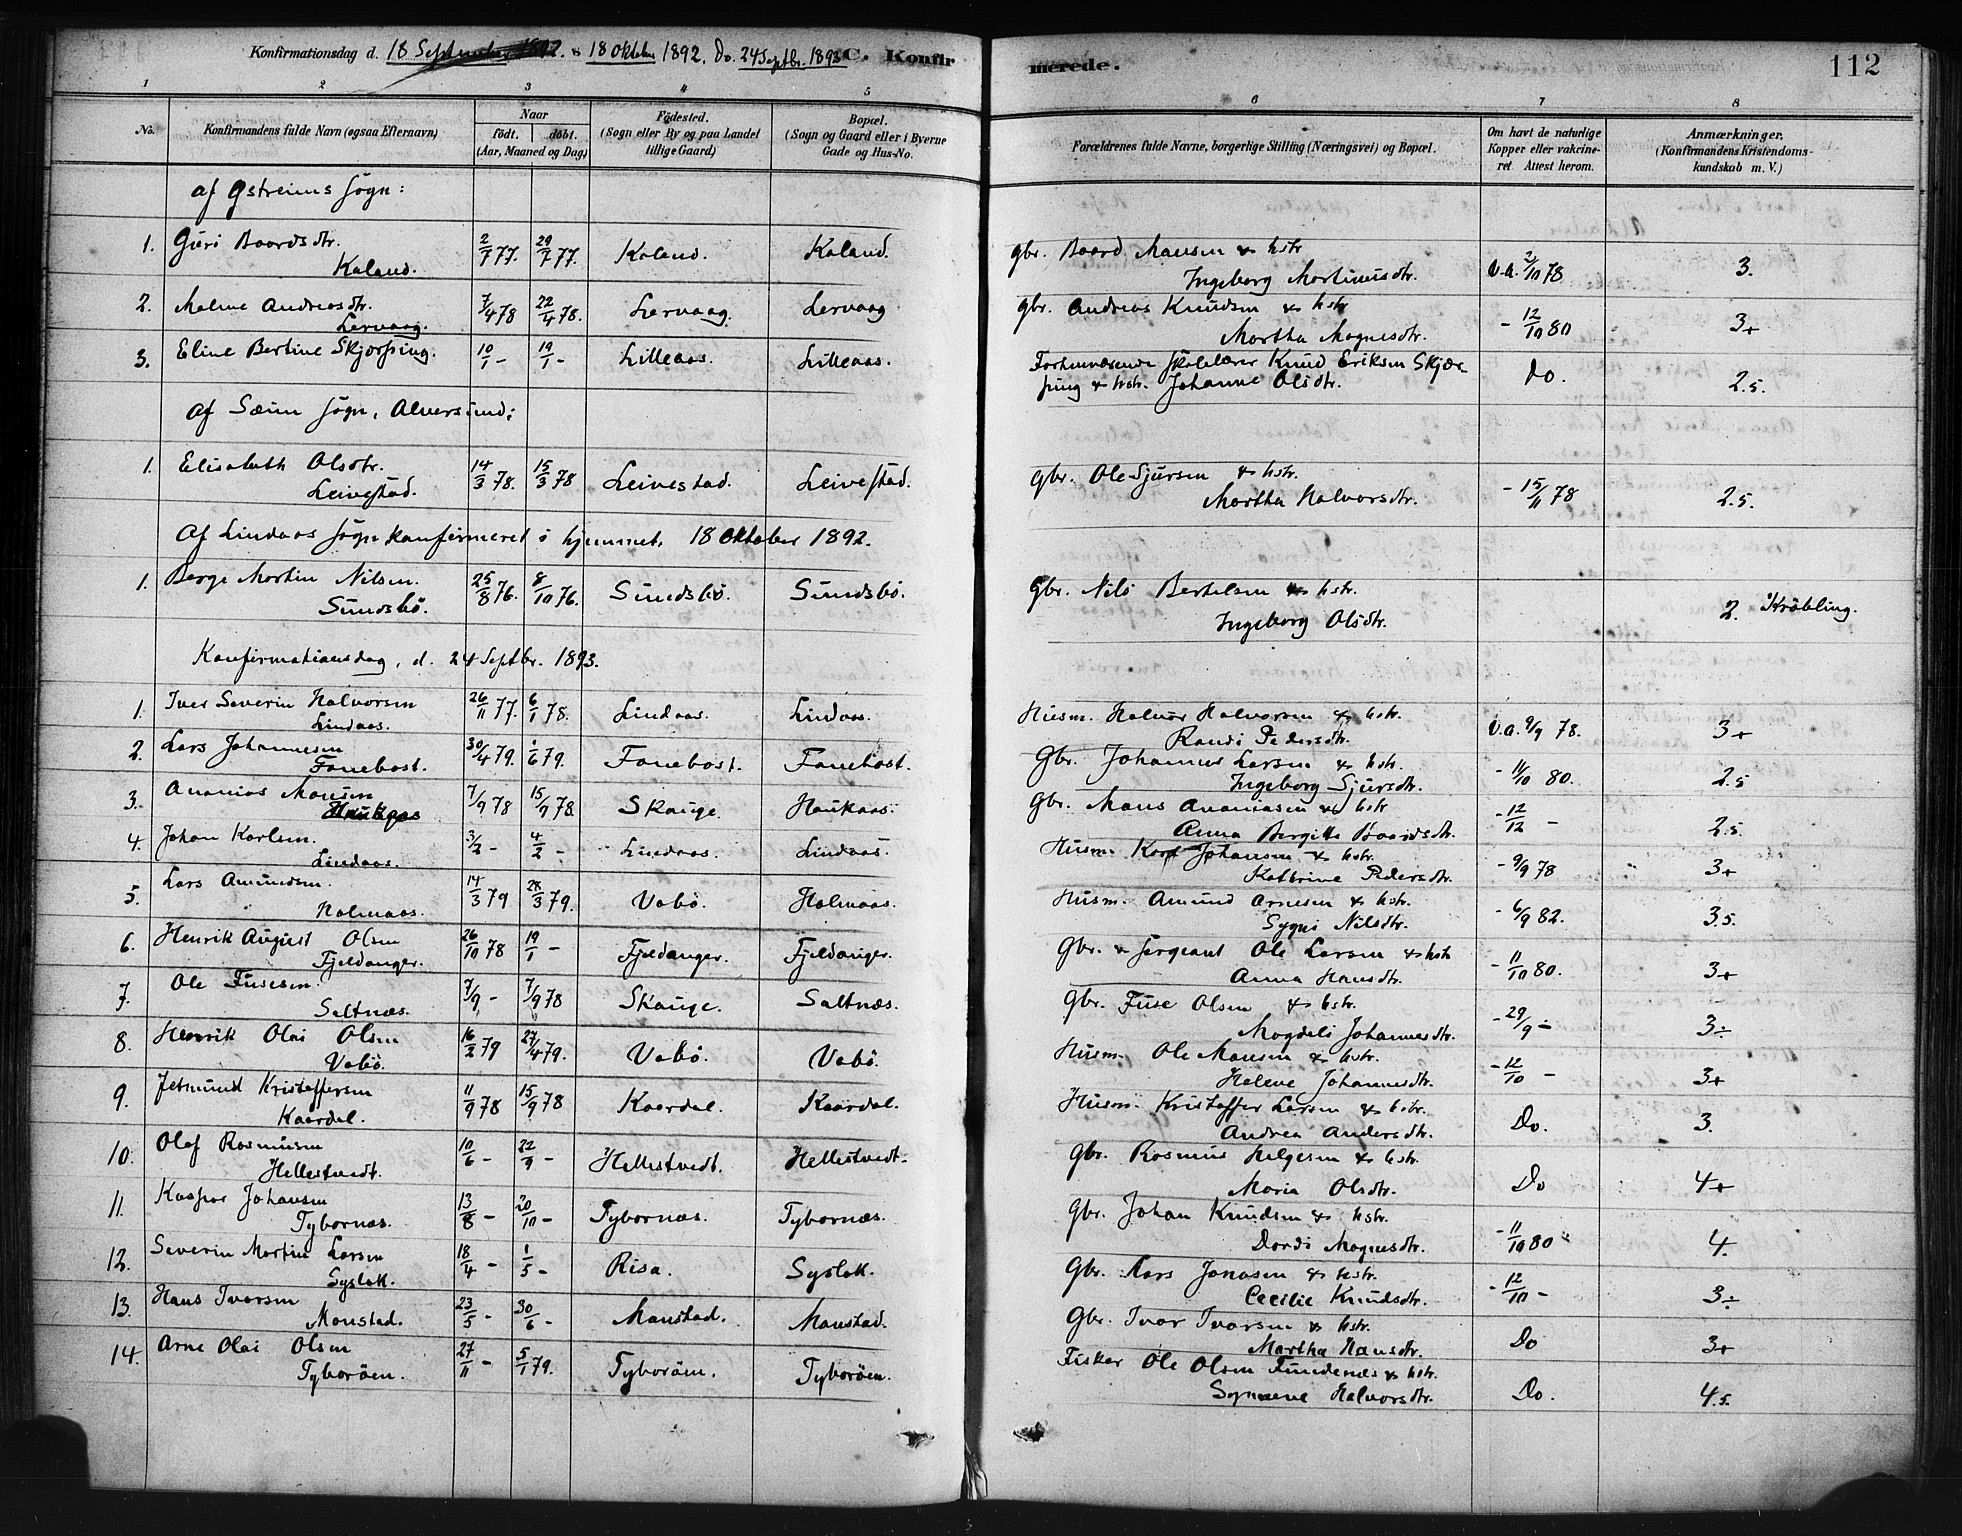 Konfirmationsdag d. 18 September 1892. & 18 Oktober 1892. Do. 24 Septbr. 1893 C. Konfirmerede. 112
1 2 3 4 5 6 7 8
No. Konfirmandens fulde Navn (ogsaa Efternavn) Naar födt. döbt. (Aar, Maaned og Dag) Födested. (Sogn eller By og paa Landet tillige Gaard) Bopæl. (Sogn og Gaard eller i Byerne Gade og Hus-No. Forældrenes fulde Navne, borgerlige Stilling (Næringsvei) og Bopæl. Om havt de naturlige Kopper eller vakcineret Attest herom. Anmærkninger, (Konfirmandens Kristendomskundskab m. V.)
af Østreims Sogn:
1. Guri Baardsdtr. Kaland. 2/7 77. 29/7 77. Kaland. Kaland. Gbr. Baard Mansen & hstr. Ingeborg Martinusdtr. v.a. 2/10 78 3.
2. Malene Andreasdtr. Lervaag. 7/4 78 22/4 78. Lervaag. Lervaag Gbr. Andreas Knudsen & hstr. Martha Magnesdtr. - 12/10 80 3+
3. Eline Bertine Skjærping. 10/1 - 19/1 - Lilleaas. Lilleaas. Forhenværende Skolelærer Knud Eriksen Skjærping & hstr. Johanne Olsdtr. Do. 2.5.
Af Sæim Sogn, Alversund:
1. Elisabeth Olsdtr. Leivestad. 14/3 78. 15/3 78 Leivestad. Leivestad. Gbr. Ole Sjursen & hstr. Martha Halvorsdtr. - 15/11 78 2.5.
Af Lindaas Sogn, konfirmeret i hjemmet, 18 Oktober 1892.
1. Berge Martin Nilsen. Sundsbö. 25/8 76. 8/10 76. Sundsbö. Sundsbö. Gbr. Nils Bertelsen & hstr. Ingeborg Olsdtr. 2. Kröbling.
Konfirmationsdag, d. 24 Septbr. 1893.
1. Iver Severin Halvorsen Lindaas. 26/11 77. 6/1 78. Lindaas. Lindaas. Husm. Halvor Halvorsen & hstr. Randi Pedersdtr. v.a. 9/9 78. 3+
2. Lars Johannesen Fanebost. 30/4 79. 1/6 79. Fanebost. Fanebost. Gbr. Johannes Larsen & hstr. Ingeborg Sjursdtr. - 11/10 80. 2.5
3. Ananias Mansen Haukaas 7/9 78 15/9 78. Skauge. Haukaas. Gbr. Mans Ananiasen & hstr. Anna Bergitte Baardsdtr. - 12/12 - 2.5.
4. Johan Karlsen. Lindaas. 3/2 - 4/2 - Lindaas. Lindaas. Husm. Karl Johansen & hstr. Kathrine Pedersdtr. - 9/9 78 3+
5. Lars Amundsen. Halmaas. 14/3 79 28/3 79. Vabö. Halmaas. Husm. Amund Arnesen & hstr. Sygni Nilsdtr. - 6/9 82. 3.5.
6. Henrik August Olsen Fjeldanger. 26/10 78 19/1 - Fjeldanger. Fjeldanger. Gbr. & Sergeant Ole Larsen & hstr. Anna Hansdtr. - 11/10 80. 3+
7. Ole Fusesen. Saltnæs. 7/9 - 7/9 78 Skauge. Saltnæs. Gbr. Fuse Olsen & hstr. Magdeli Johannesdtr. - 29/9 - 3÷
8. Henrik Olai Olsen Vabö. 16/2 79 27/4 79. Vabö. Vabö. Husm. Ole Mansen & hstr. Helene Johannesdtr. - 12/10 - 3+
9. Jetmund Kristoffersen Kaardal. 11/9 78 15/9 78 Kaardal. Kaardal. Husm. Kristoffer Larsen & hstr. Andrea Andersdtr. Do. 3.
10. Olaf Rasmusen Hellestvedt. 10/6 - 22/9 - Hellestvedt. Hellestvedt. Gbr. Rasmus Helgesen & hstr. Maria Olsdtr. Do 4+
11. Kaspar Johansen Tybornæs. 13/8 - 20/10 - Tybornæs. Tybornæs. Gbr. Johan Knudsen & hstr. Dordi Magnesdtr. - 11/10 80 4.
12. Severin Martin Larsen Syslak. 18/4 - 1/5 - Risa. Syslak. Gbr. Lars Jonasen & hstr. Cecilie Knudsdtr. - 12/10 - 3÷
13. Hans Ivarsen Monstad. 23/5 - 30/6 - Monstad. Monstad. Gbr. Ivar Ivarsen & hstr. Martha Hansdtr. Do 3+
14. Arne Olai Olsen Tyboröen. 27/11 - 5/1 79. Tyboröen. Tyboröen. Fisker Ole Olsen Fundenæs & hstr. Synneve Halvorsdtr. Do. 4.5.